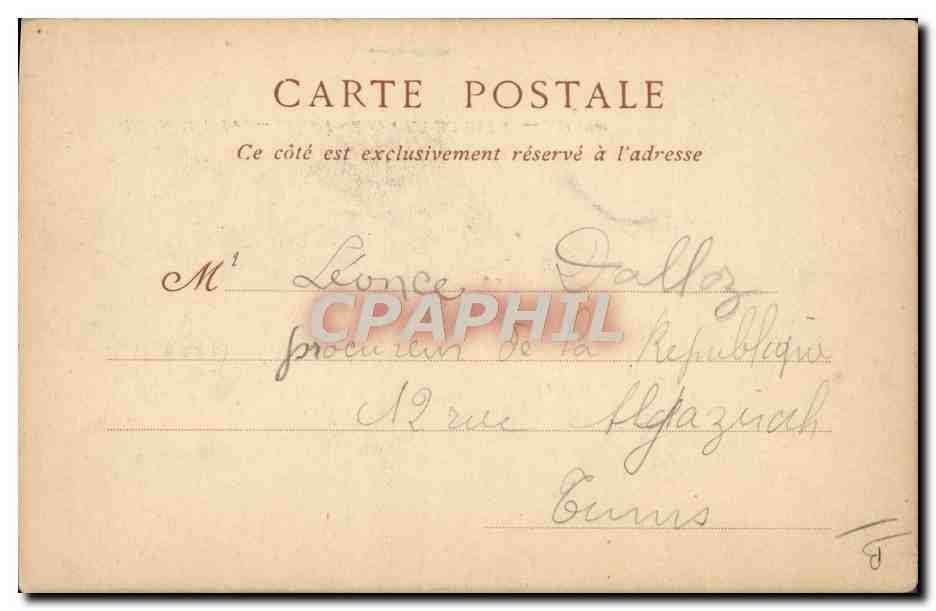 CARTE POSTALE
Ce côté est exclusivement réservé à l'adresse
Mr Léonce Dalloz
CPAPHIL
procureur de la République
12 rue
Tunis